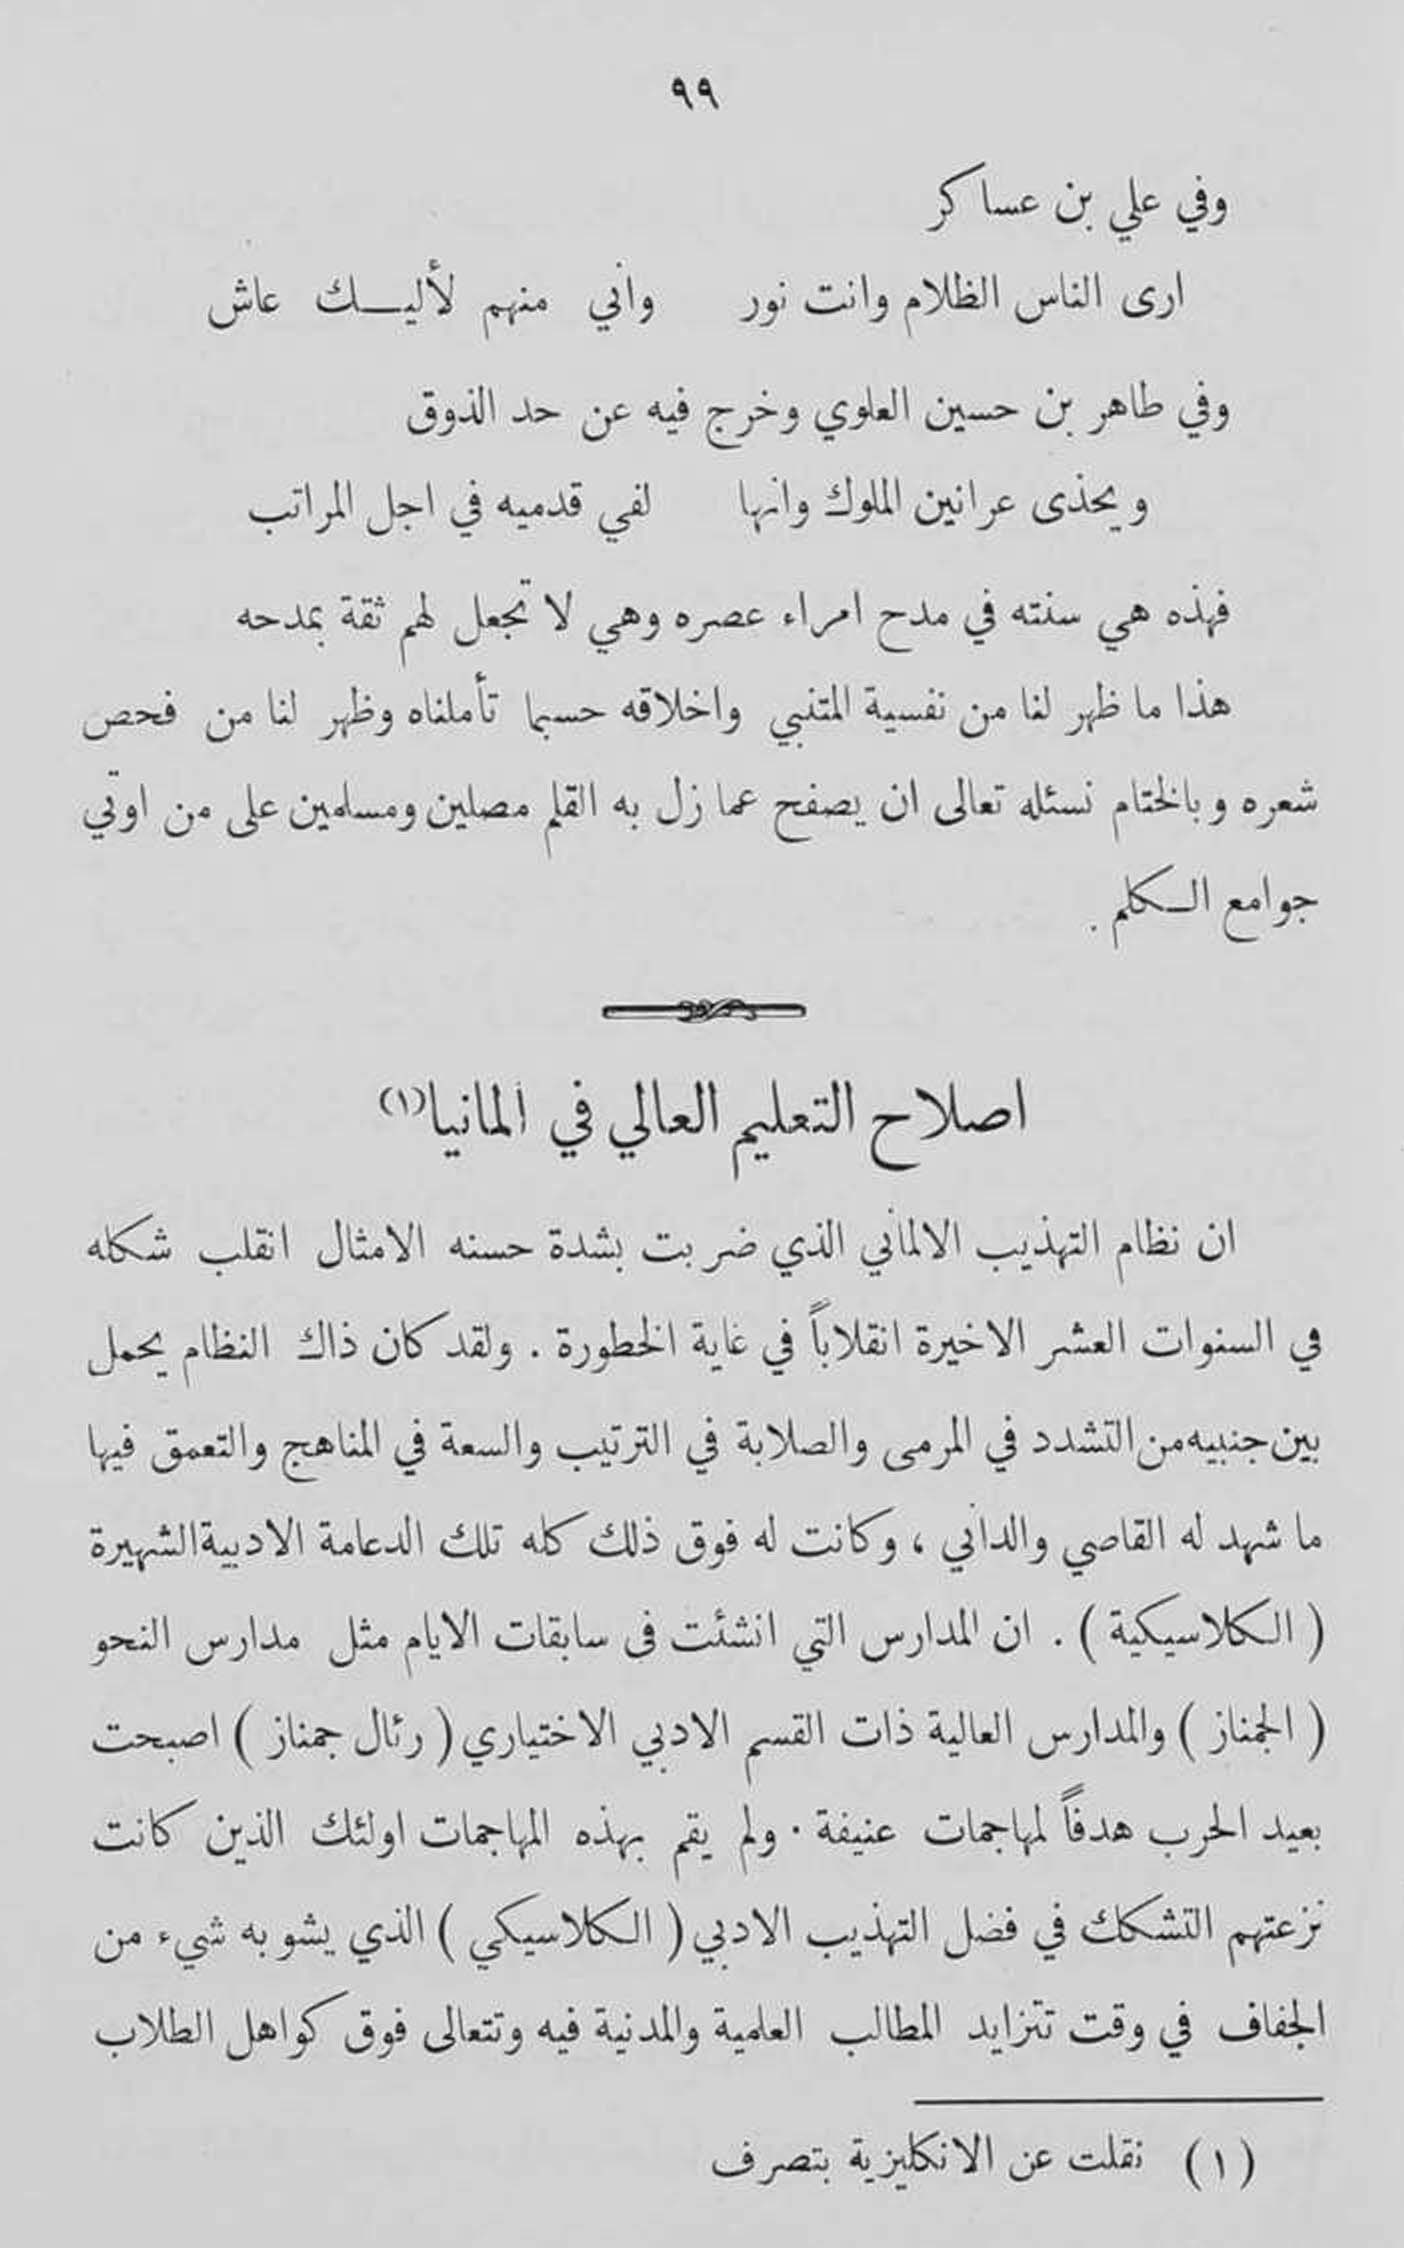 ٩٩
وفي علي بن عساكر
ارى الناس الظلام وانت نور وأني منهم لأليك عاش
وفي طاهر بن حسين العلوي وخرج فيه عن حد الذوق
ويحذى عرانين الملوك وانها لفي قدميه في اجل المراتب
فهذه هي سنته في مدح امراء عصره وهي لا تجعل لهم ثقة بمدحه
هذا ما ظهر لنا من نفسية المتنبي واخلاقه حسبما تأملناه وظهر لنا من فحص
شعره وبالختام نسئله تعالى ان يصفح عما زل به القلم مصلين ومسلمين على من اوتي
جوامع الكلم .
اصلاح التعليم العالي في المانيا (١)
ان نظام التهذيب الالماني الذي ضربت بشدة حسنه الامثال انقلب شكله
في السنوات العشر الاخيرة انقلاباً في غاية الخطورة . ولقد كان ذاك النظام يحمل
بين جنبيه من التشدد في المرمى والصلابة في الترتيب والسعة في المناهج والتعمق فيها
ما شهد له القاصي والداني ، وكانت له فوق ذلك كله تلك الدعامة الادبية الشهيرة
( الكلاسيكية ) . ان المدارس التي انشئت في سابقات الايام مثل مدارس النحو
( الجمناز ) والمدارس العالية ذات القسم الادبي الاختياري ( رئال جمناز ) اصبحت
بعيد الحرب هدفاً لمهاجمات عنيفة . ولم يقم بهذه المهاجمات اولئك الذين كانت
نزعتهم التشكك في فضل التهذيب الادبي ( الكلاسيكي ) الذي يشوبه شيء من
الجفاف في وقت تتزايد المطالب العلمية والمدنية فيه وتتعالى فوق كواهل الطلاب
(١) نقلت عن الانكليزية بتصرف